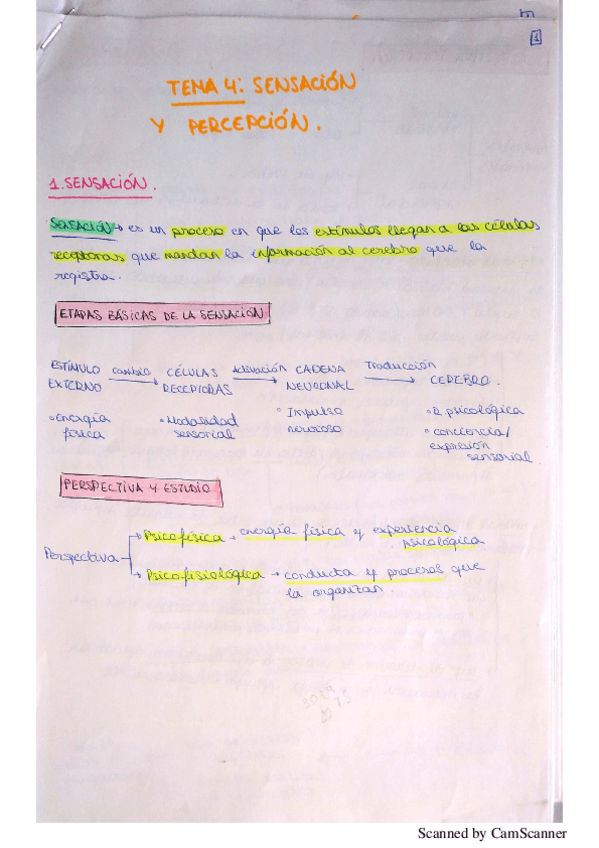 1
TEMA 4: SENSACIÓN
Y PERCEPCIÓN.
1. SENSACIÓN.
SENSACIÓN → es un proceso en que los estímulos llegan a las células
receptoras que mandan la información al cerebro que la
registra.
ETAPAS BÁSICAS DE LA SENSACIÓN
ESTÍMULO EXTERNO → cambio → CÉLULAS RECEPTORAS → Activación → CADENA NEURONAL → Traducción → CEREBRO.
◦ Energía física
◦ Modalidad sensorial
◦ Impulso nervioso
◦ R. psicológica
◦ conciencia/
expresión
sensorial.
PERSPECTIVA Y ESTUDIO
Perspectiva
→ Psicofísica → energía física y experiencia
psicológica
→ Psicofisiológica → conducta y procesos que
la organizan.
Scanned by CamScanner